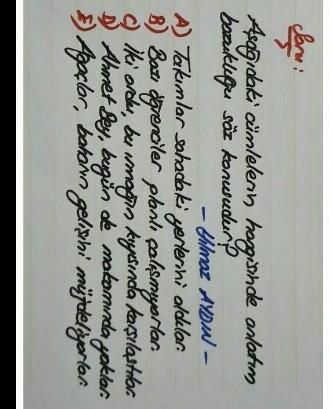 Soru:
Aşağıdaki cümlelerin hangisinde anlatım
bozukluğu söz konusudur?
- Yılmaz AYDIN -
A) Takımlar sahadaki yerlerini aldılar.
B) Bazı öğrenciler planlı çalışmıyorlar.
C) İki ordu, bu ırmağın kıyısında karşılaştılar.
D) Ahmet Bey, bugün de makamında yoklar.
E) Ağaçlar, baharın gelişini müjdeliyorlar.